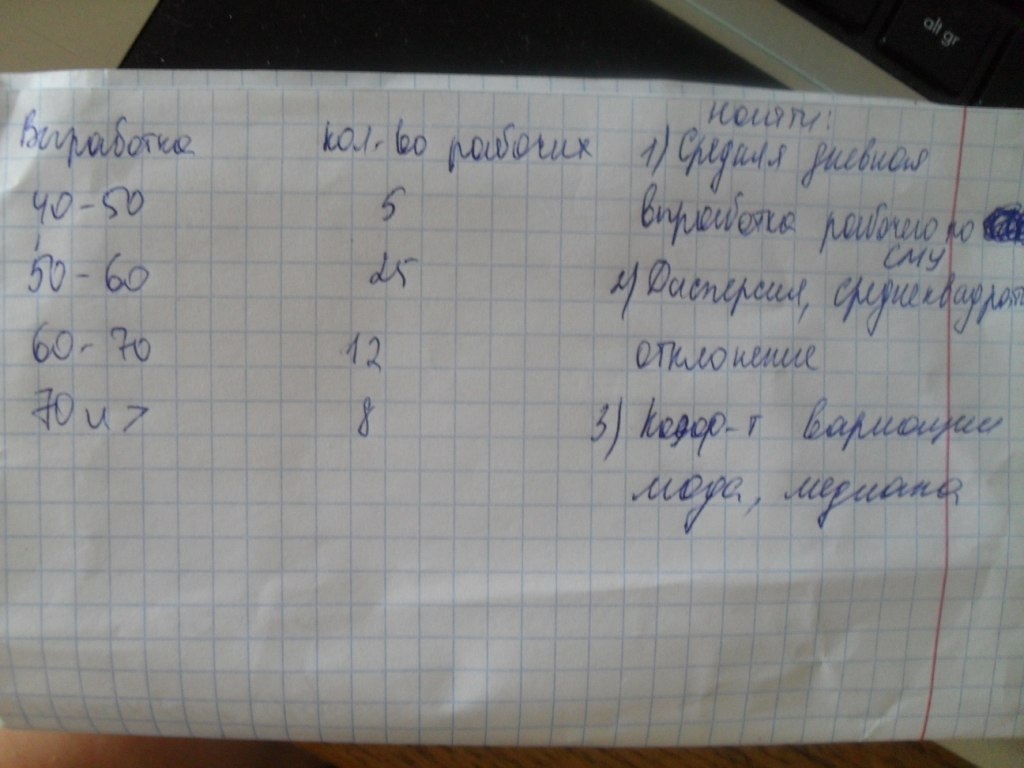 alt gr
Выработка кол-во рабочих
40-50 5
50-60 25
60-70 12
70 и > 8
Найти:
1) Средняя дневная
выработка рабочего по
СМУ
2) Дисперсия, среднеквадрат
отклонение
3) Коэф-т вариации
мода, медиана